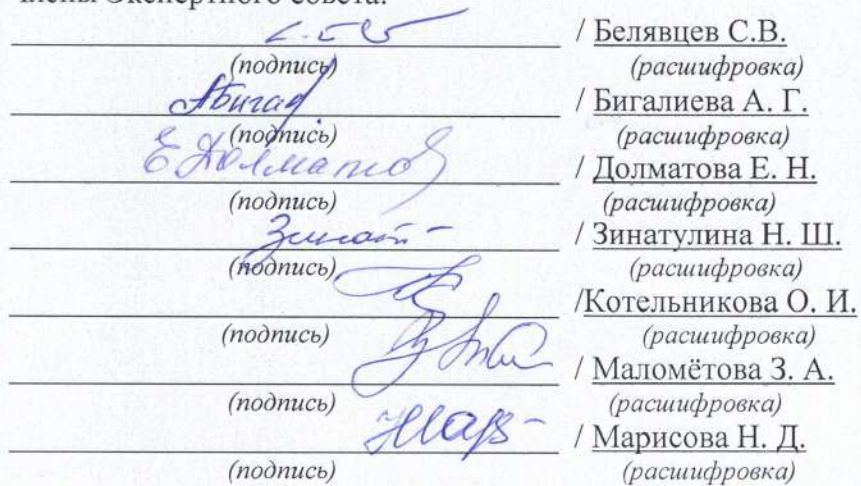 Члены Экспертного совета:
/ Белявцев С.В.
(подпись) (расшифровка)
Абигад / Бигалиева А. Г.
(подпись) (расшифровка)
Е Долматов / Долматова Е. Н.
(подпись) (расшифровка)
Зинат / Зинатулина Н. Ш.
(подпись) (расшифровка)
/Котельникова О. И.
(подпись) (расшифровка)
/ Маломётова З. А.
(подпись) (расшифровка)
/ Марисова Н. Д.
(подпись) (расшифровка)